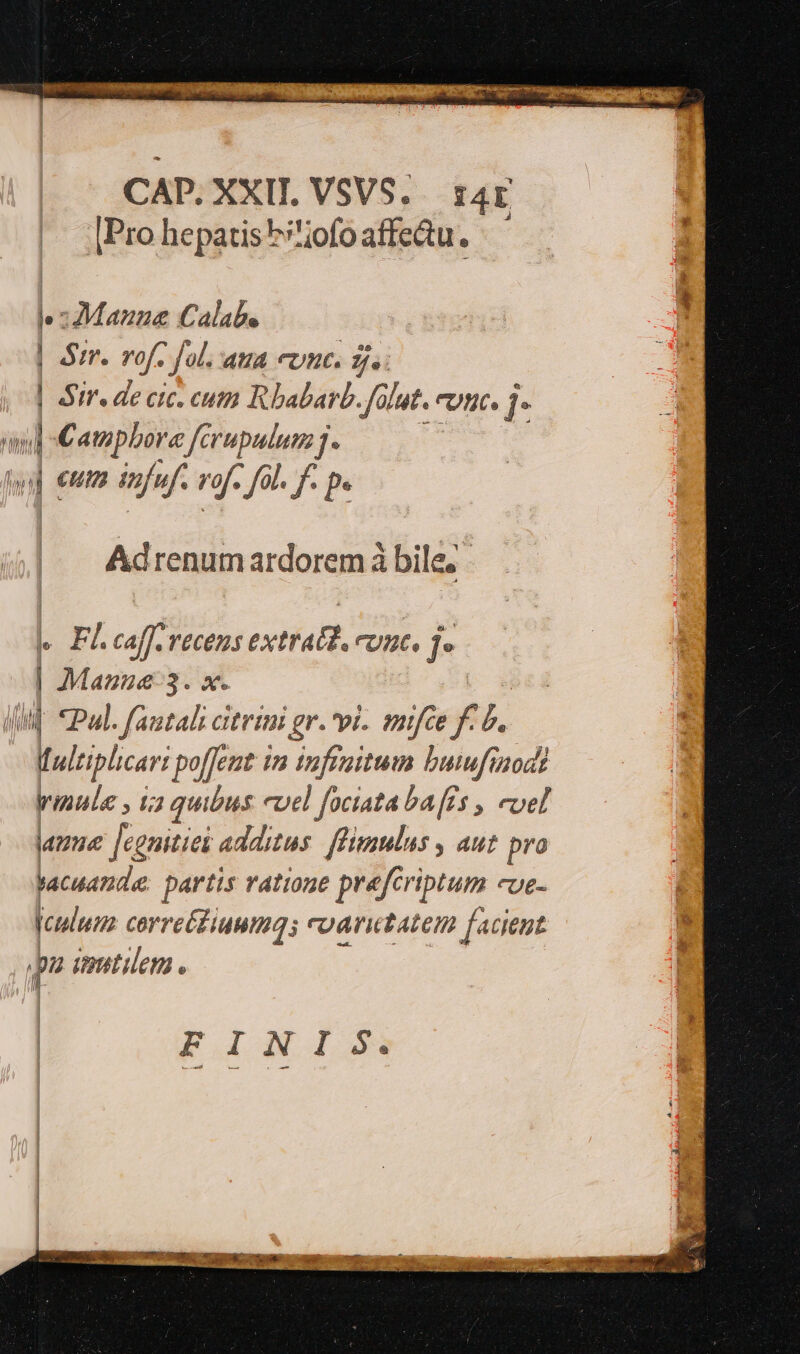 CAP. XXII. VSVS. 141
Pro hepatis bilioſo affectu.
Mannæ Calab.
Sir. roſ. ſol. ana vnc. ij.
Sir. de cic. cum Rhabarb. ſolut. vnc. j.
Camphoræ ſcrupulum j.
cum infuſ. roſ. ſol. f. p.
Ad renum ardorem à bile.
Fl. caſſ. recens extract. vnc. j.
Mannæ ʒ. x.
Pul. ſantali citrini gr. vi. miſce f. b.
ultiplicari poſſent in infinitum huiuſmodi
rmulæ, in quibus vel ſociata baſis, vel
annæ ſegnitiei additus ſtimulus, aut pro
acuandæ partis ratione præſcriptum ve-
iculum correctiuumq; varietatem facient
inutilem.
FINIS.